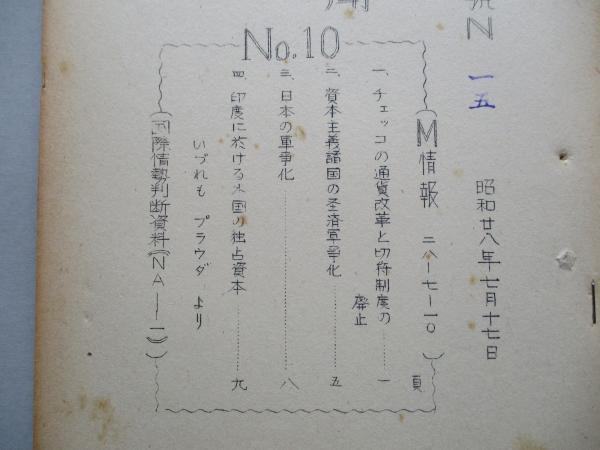 號N 一五
昭和廿八年七月十七日
No.10
M情報 二八―七―一〇
頁
一、チェッコの通貨改革と切符制度の廃止………一
二、資本主義諸国の圣済軍事化………五
三、日本の軍事化………八
四、印度に於ける米国の独占資本………九
いづれも プラウダ より
(国際情勢判断資料(NA―一))